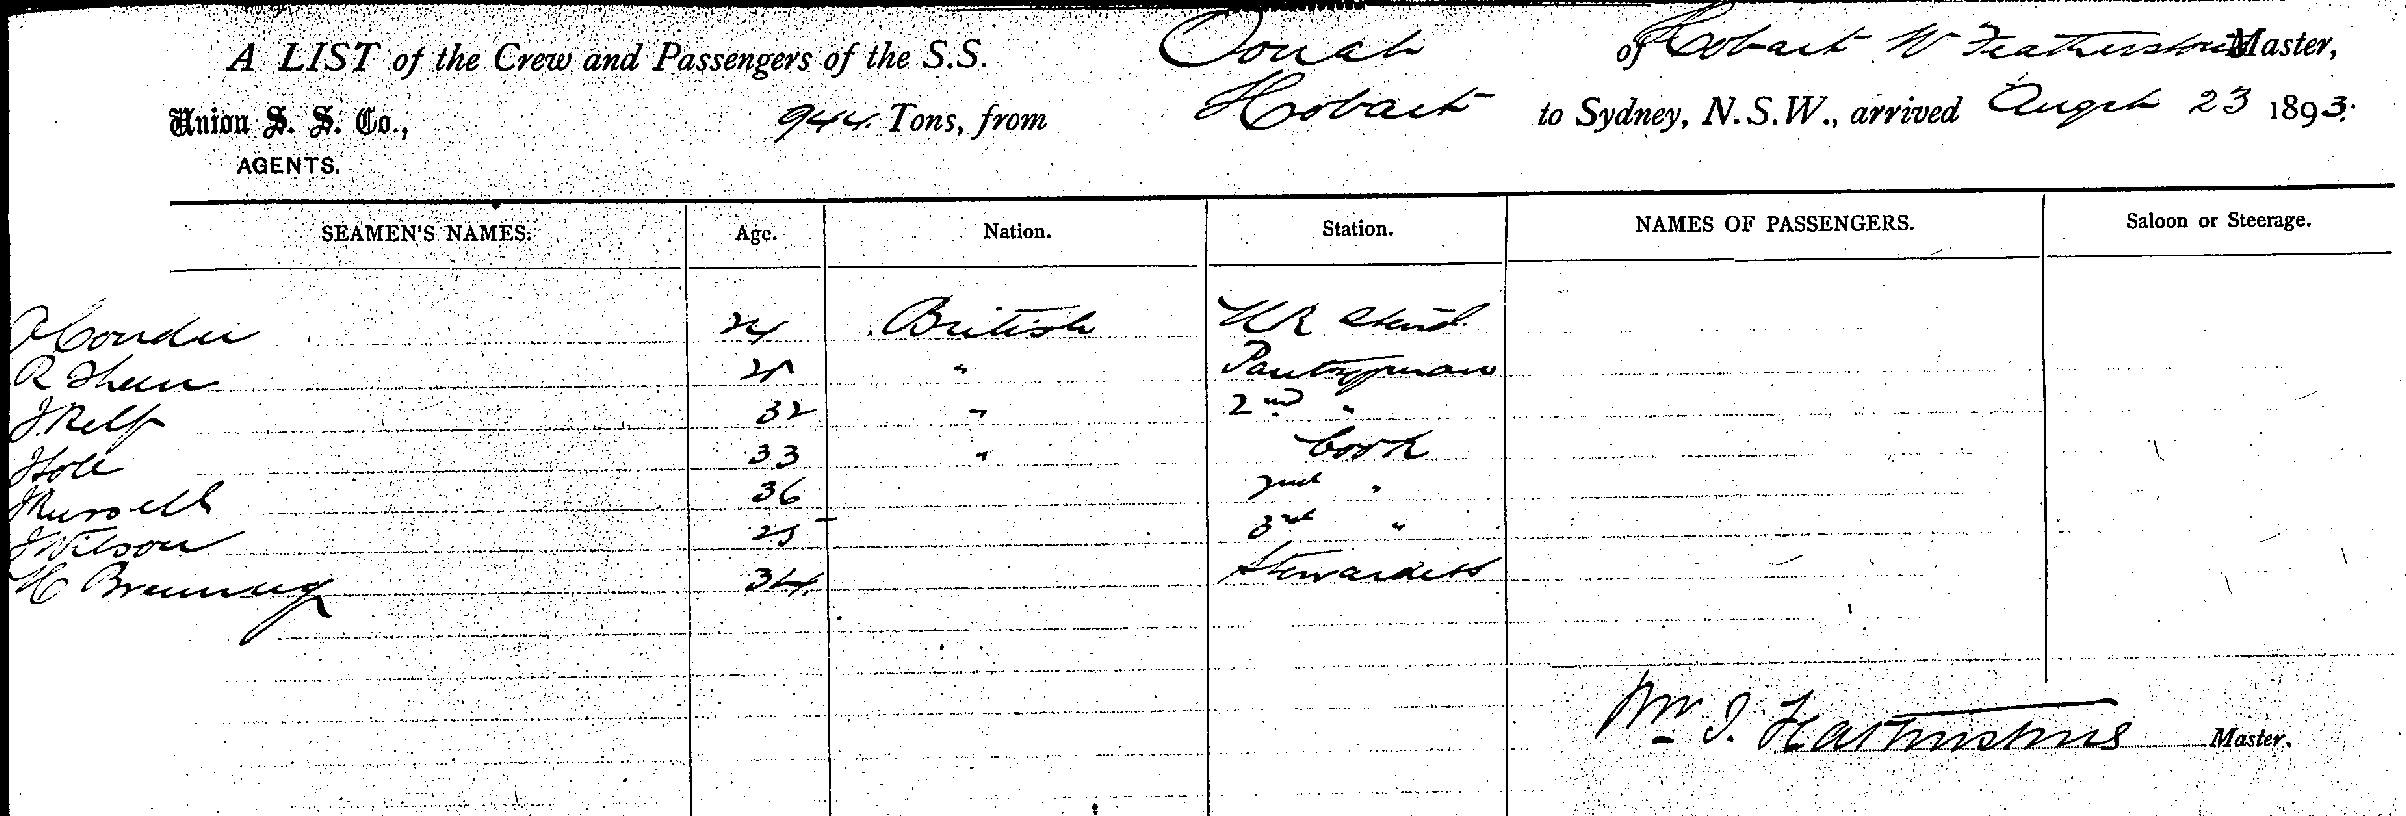 A LIST of the Crew and Passengers of the S.S. Oonah of Hobart W Featherstone Master,
Union S. S. Co., 944 Tons, from Hobart to Sydney, N.S.W., arrived Augst 23 1893.
AGENTS.
SEAMEN'S NAMES. Age. Nation. Station. NAMES OF PASSENGERS. Saloon or Steerage.
A Conder 24 British
R 〃 Pantryman
J Relf 32 〃 2nd 〃
33 〃 Cook
J Russell 36 2nd 〃
J Wilson 25 3rd 〃
H 34 Stewardess
Wm J. Featherstone Master.